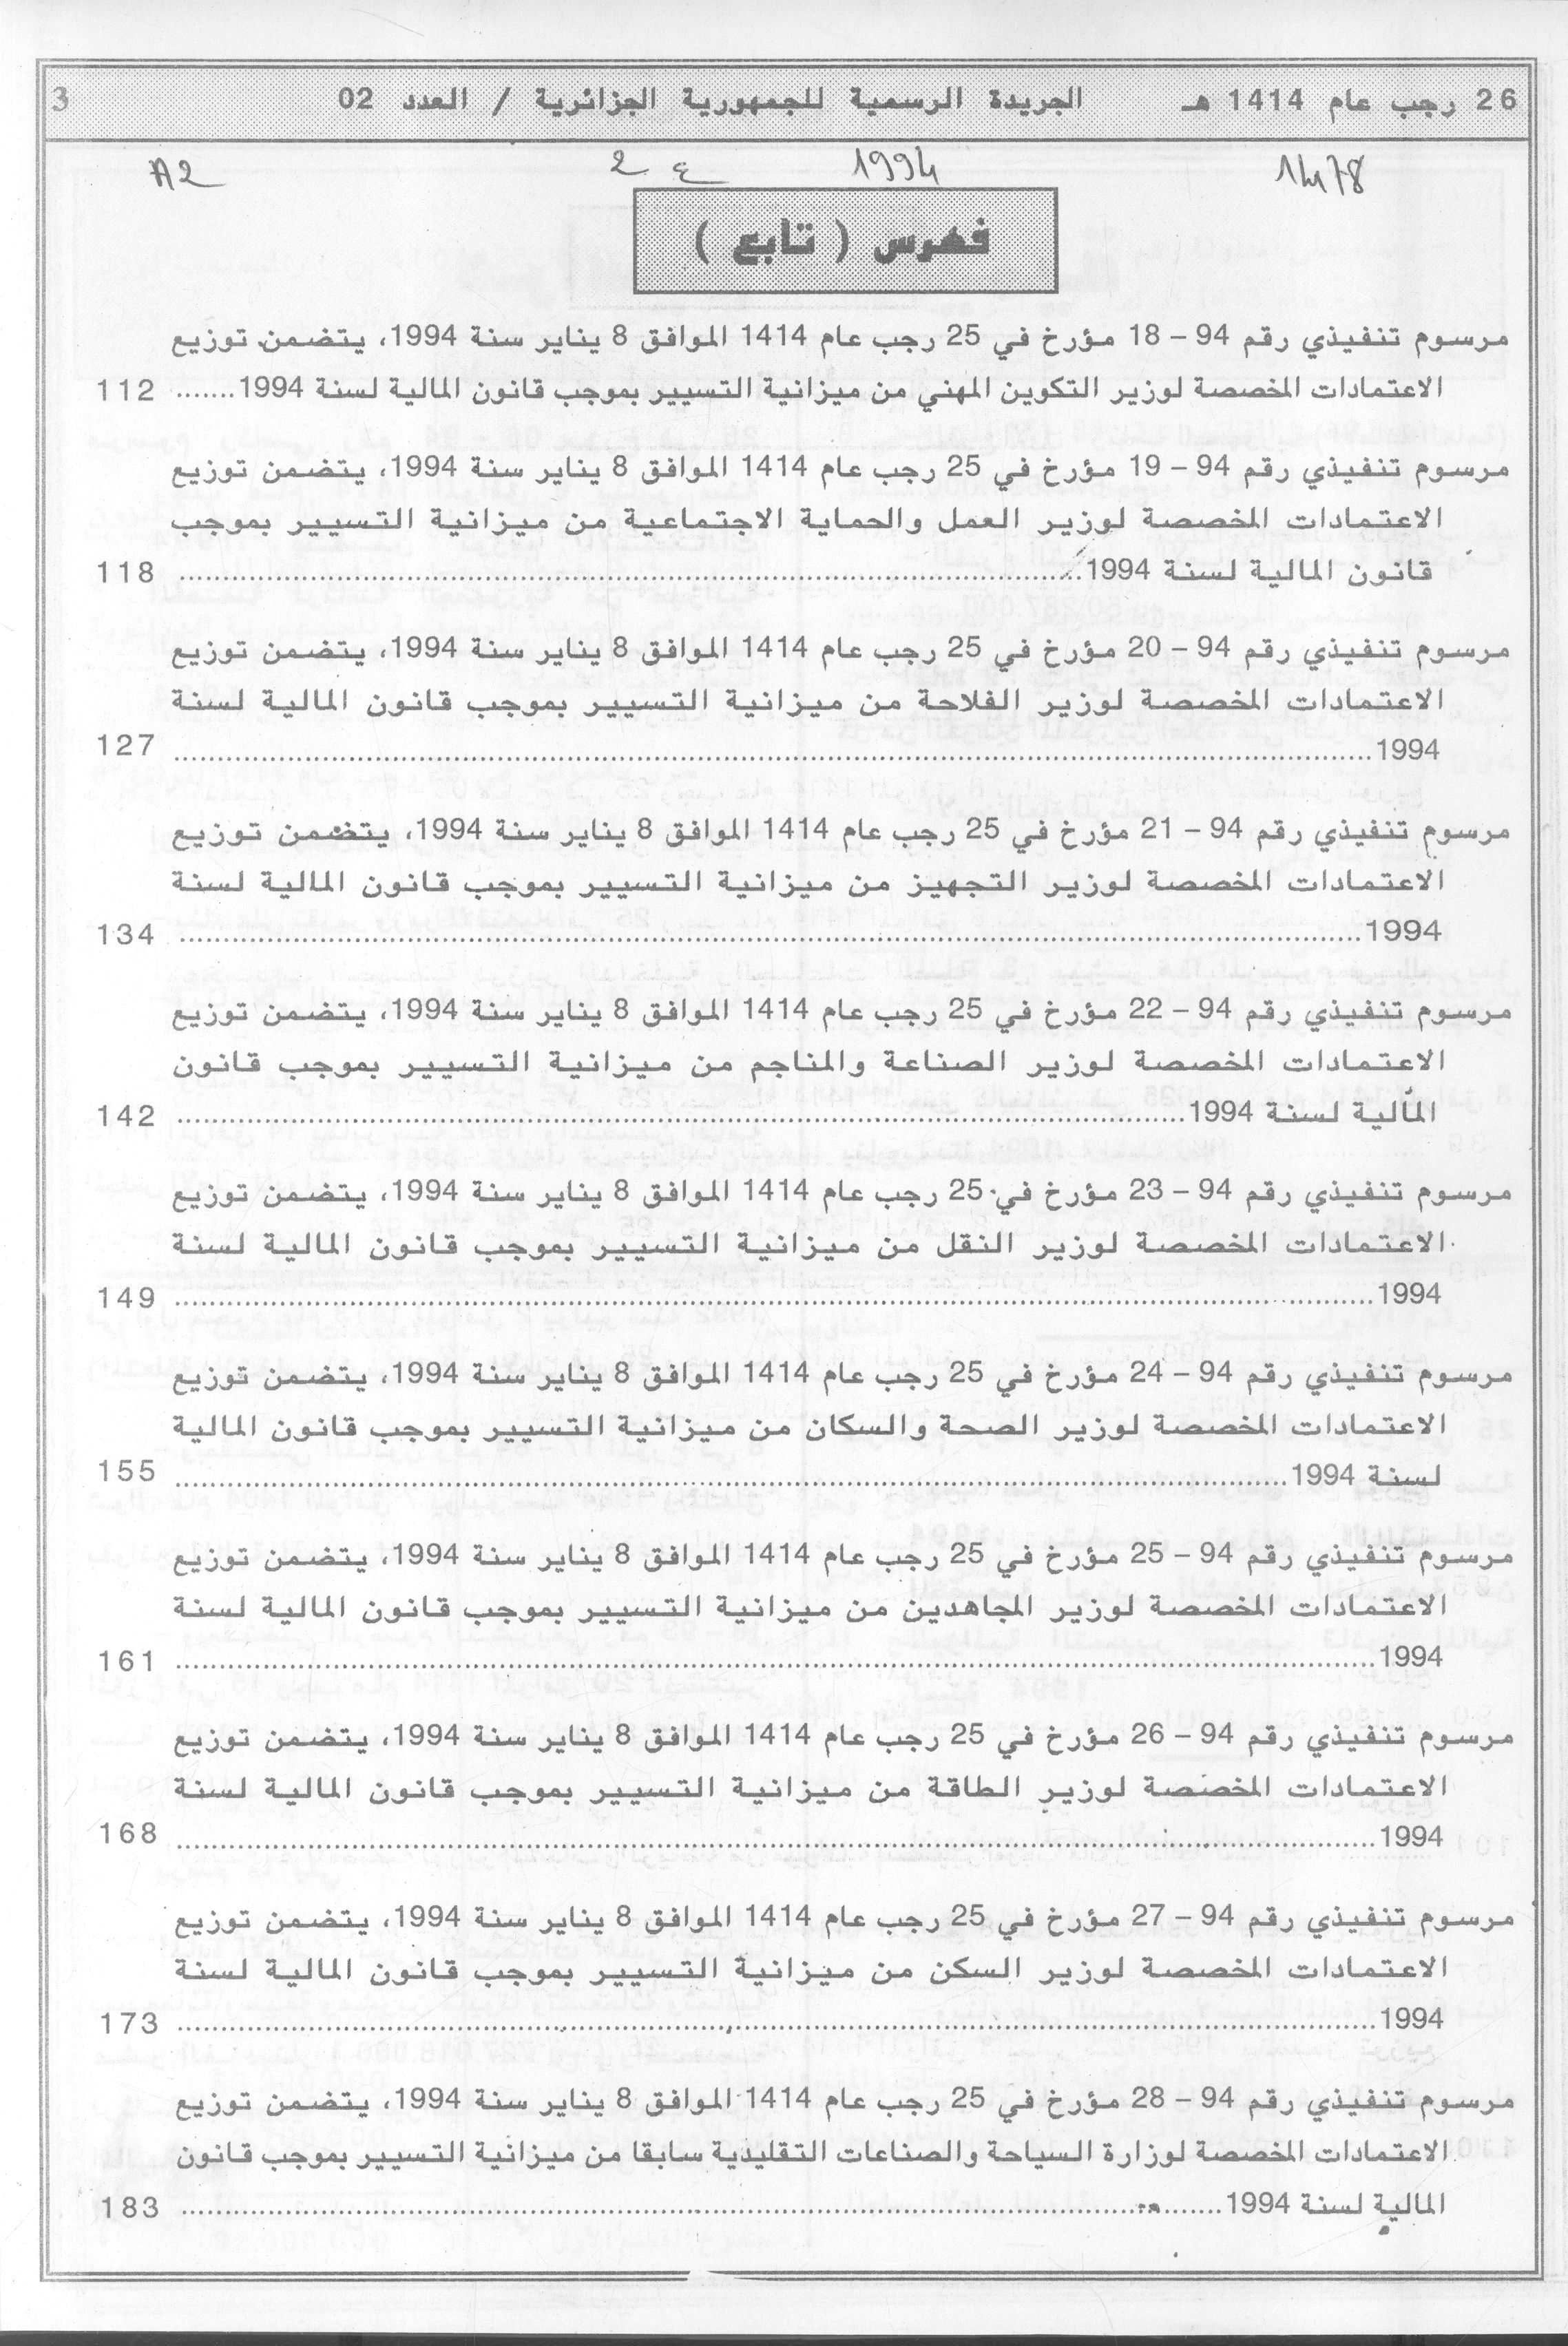 26 رجب عام 1414 هـ الجريدة الرسمية للجمهورية الجزائرية / العدد 02 3
1478 1994 ع 2 A2
فهرس ( تابع )
مرسوم تنفيذي رقم 94 – 18 مؤرخ في 25 رجب عام 1414 الموافق 8 يناير سنة 1994، يتضمن توزيع
الاعتمادات المخصصة لوزير التكوين المهني من ميزانية التسيير بموجب قانون المالية لسنة 1994....... 112
مرسوم تنفيذي رقم 94 – 19 مؤرخ في 25 رجب عام 1414 الموافق 8 يناير سنة 1994، يتضمن توزيع
الاعتمادات المخصصة لوزير العمل والحماية الاجتماعية من ميزانية التسيير بموجب
قانون المالية لسنة 1994....... 118
مرسوم تنفيذي رقم 94 – 20 مؤرخ في 25 رجب عام 1414 الموافق 8 يناير سنة 1994، يتضمن توزيع
الاعتمادات المخصصة لوزير الفلاحة من ميزانية التسيير بموجب قانون المالية لسنة
1994....... 127
مرسوم تنفيذي رقم 94 – 21 مؤرخ في 25 رجب عام 1414 الموافق 8 يناير سنة 1994، يتضمن توزيع
الاعتمادات المخصصة لوزير التجهيز من ميزانية التسيير بموجب قانون المالية لسنة
1994....... 134
مرسوم تنفيذي رقم 94 – 22 مؤرخ في 25 رجب عام 1414 الموافق 8 يناير سنة 1994، يتضمن توزيع
الاعتمادات المخصصة لوزير الصناعة والمناجم من ميزانية التسيير بموجب قانون
المالية لسنة 1994....... 142
مرسوم تنفيذي رقم 94 – 23 مؤرخ في 25 رجب عام 1414 الموافق 8 يناير سنة 1994، يتضمن توزيع
الاعتمادات المخصصة لوزير النقل من ميزانية التسيير بموجب قانون المالية لسنة
1994....... 149
مرسوم تنفيذي رقم 94 – 24 مؤرخ في 25 رجب عام 1414 الموافق 8 يناير سنة 1994، يتضمن توزيع
الاعتمادات المخصصة لوزير الصحة والسكان من ميزانية التسيير بموجب قانون المالية
لسنة 1994....... 155
مرسوم تنفيذي رقم 94 – 25 مؤرخ في 25 رجب عام 1414 الموافق 8 يناير سنة 1994، يتضمن توزيع
الاعتمادات المخصصة لوزير المجاهدين من ميزانية التسيير بموجب قانون المالية لسنة
1994....... 161
مرسوم تنفيذي رقم 94 – 26 مؤرخ في 25 رجب عام 1414 الموافق 8 يناير سنة 1994، يتضمن توزيع
الاعتمادات المخصصة لوزير الطاقة من ميزانية التسيير بموجب قانون المالية لسنة
1994....... 168
مرسوم تنفيذي رقم 94 – 27 مؤرخ في 25 رجب عام 1414 الموافق 8 يناير سنة 1994، يتضمن توزيع
الاعتمادات المخصصة لوزير السكن من ميزانية التسيير بموجب قانون المالية لسنة
1994....... 173
مرسوم تنفيذي رقم 94 – 28 مؤرخ في 25 رجب عام 1414 الموافق 8 يناير سنة 1994، يتضمن توزيع
الاعتمادات المخصصة لوزارة السياحة والصناعات التقليدية سابقا من ميزانية التسيير بموجب قانون
المالية لسنة 1994....... 183